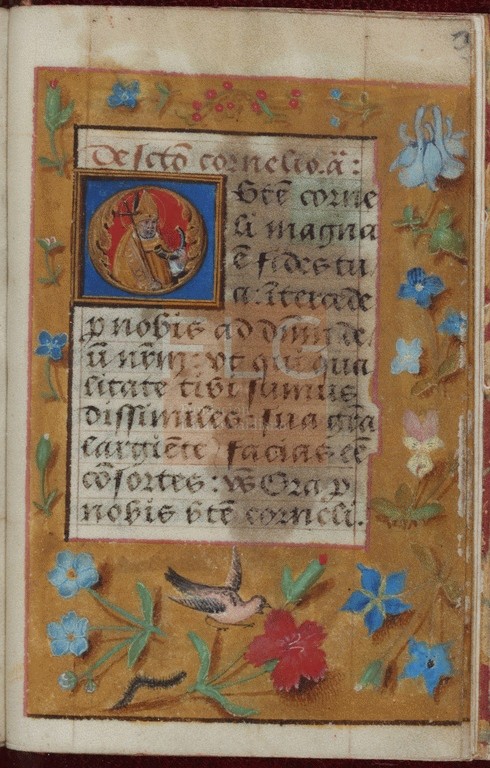 De scto cornelio. aͣ:
bte corne
li magna
ē fides tu
a: itercede
p nobis ad dnm de
ū nrm: vt qui qua
litate tibi sumus
dissimiles sua gra
largiēte facias eē
cōsortes: vs Ora p
nobis bte corneli.